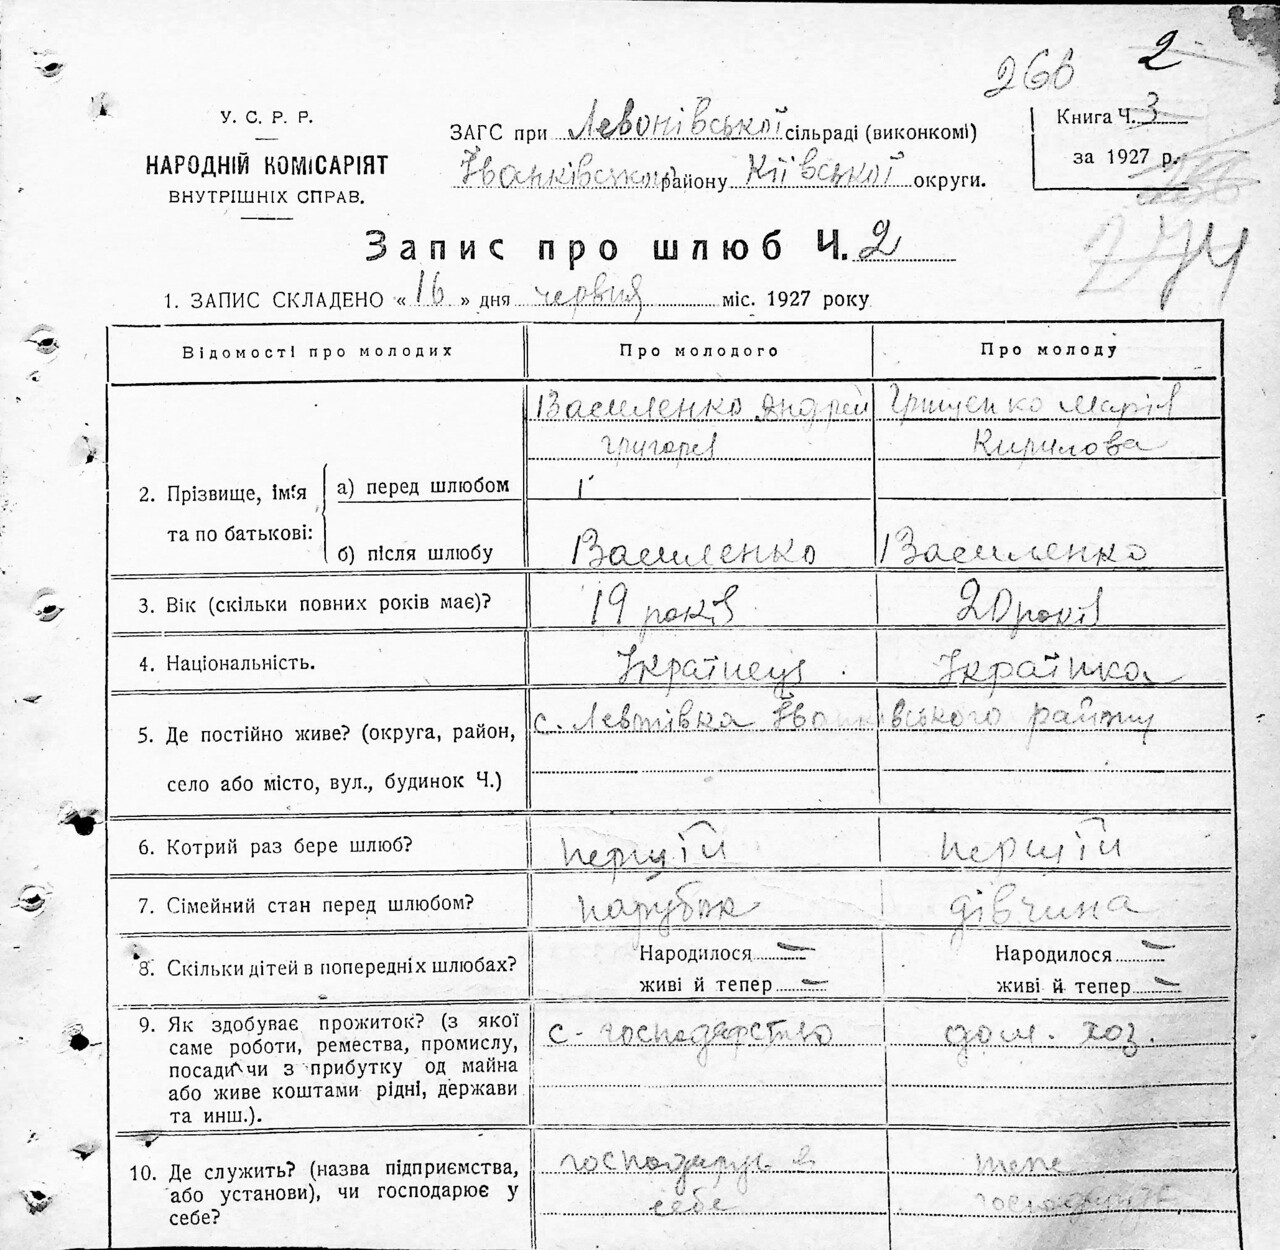 266 2
У. С. Р. Р.
НАРОДНІЙ КОМІСАРІЯТ
ВНУТРІШНІХ СПРАВ.
ЗАГС при Левонівської сільраді (виконкомі)
Іванківського району Київської округи.
Книга Ч. 3
за 1927 р.
274
Запис про шлюб Ч. 2
1. ЗАПИС СКЛАДЕНО «16» дня червня міс. 1927 року
Відомості про молодих Про молодого Про молоду
Василенко Андрей Грищенко Марія
Григорев Кирилова
2. Прізвище, ім'я та по батькові:
а) перед шлюбом
б) після шлюбу Василенко Василенко
3. Вік (скільки повних років має)? 19 років 20 років
4. Національність. Українець Українка
5. Де постійно живе? (округа, район, с. Левонівка Іванківського району
село або місто, вул., будинок Ч.)
6. Котрий раз бере шлюб? перший перший
7. Сімейний стан перед шлюбом? парубок дівчина
8. Скільки дітей в попередніх шлюбах? Народилося — Народилося —
живі й тепер — живі й тепер —
9. Як здобуває прожиток? (з якої с-господарство дом. хоз.
саме роботи, ремества, промислу,
посади чи з прибутку од майна
або живе коштами рідні, держави
та инш.).
10. Де служить? (назва підприємства, господарує в теж
або установи), чи господарює у себе господарює
себе?